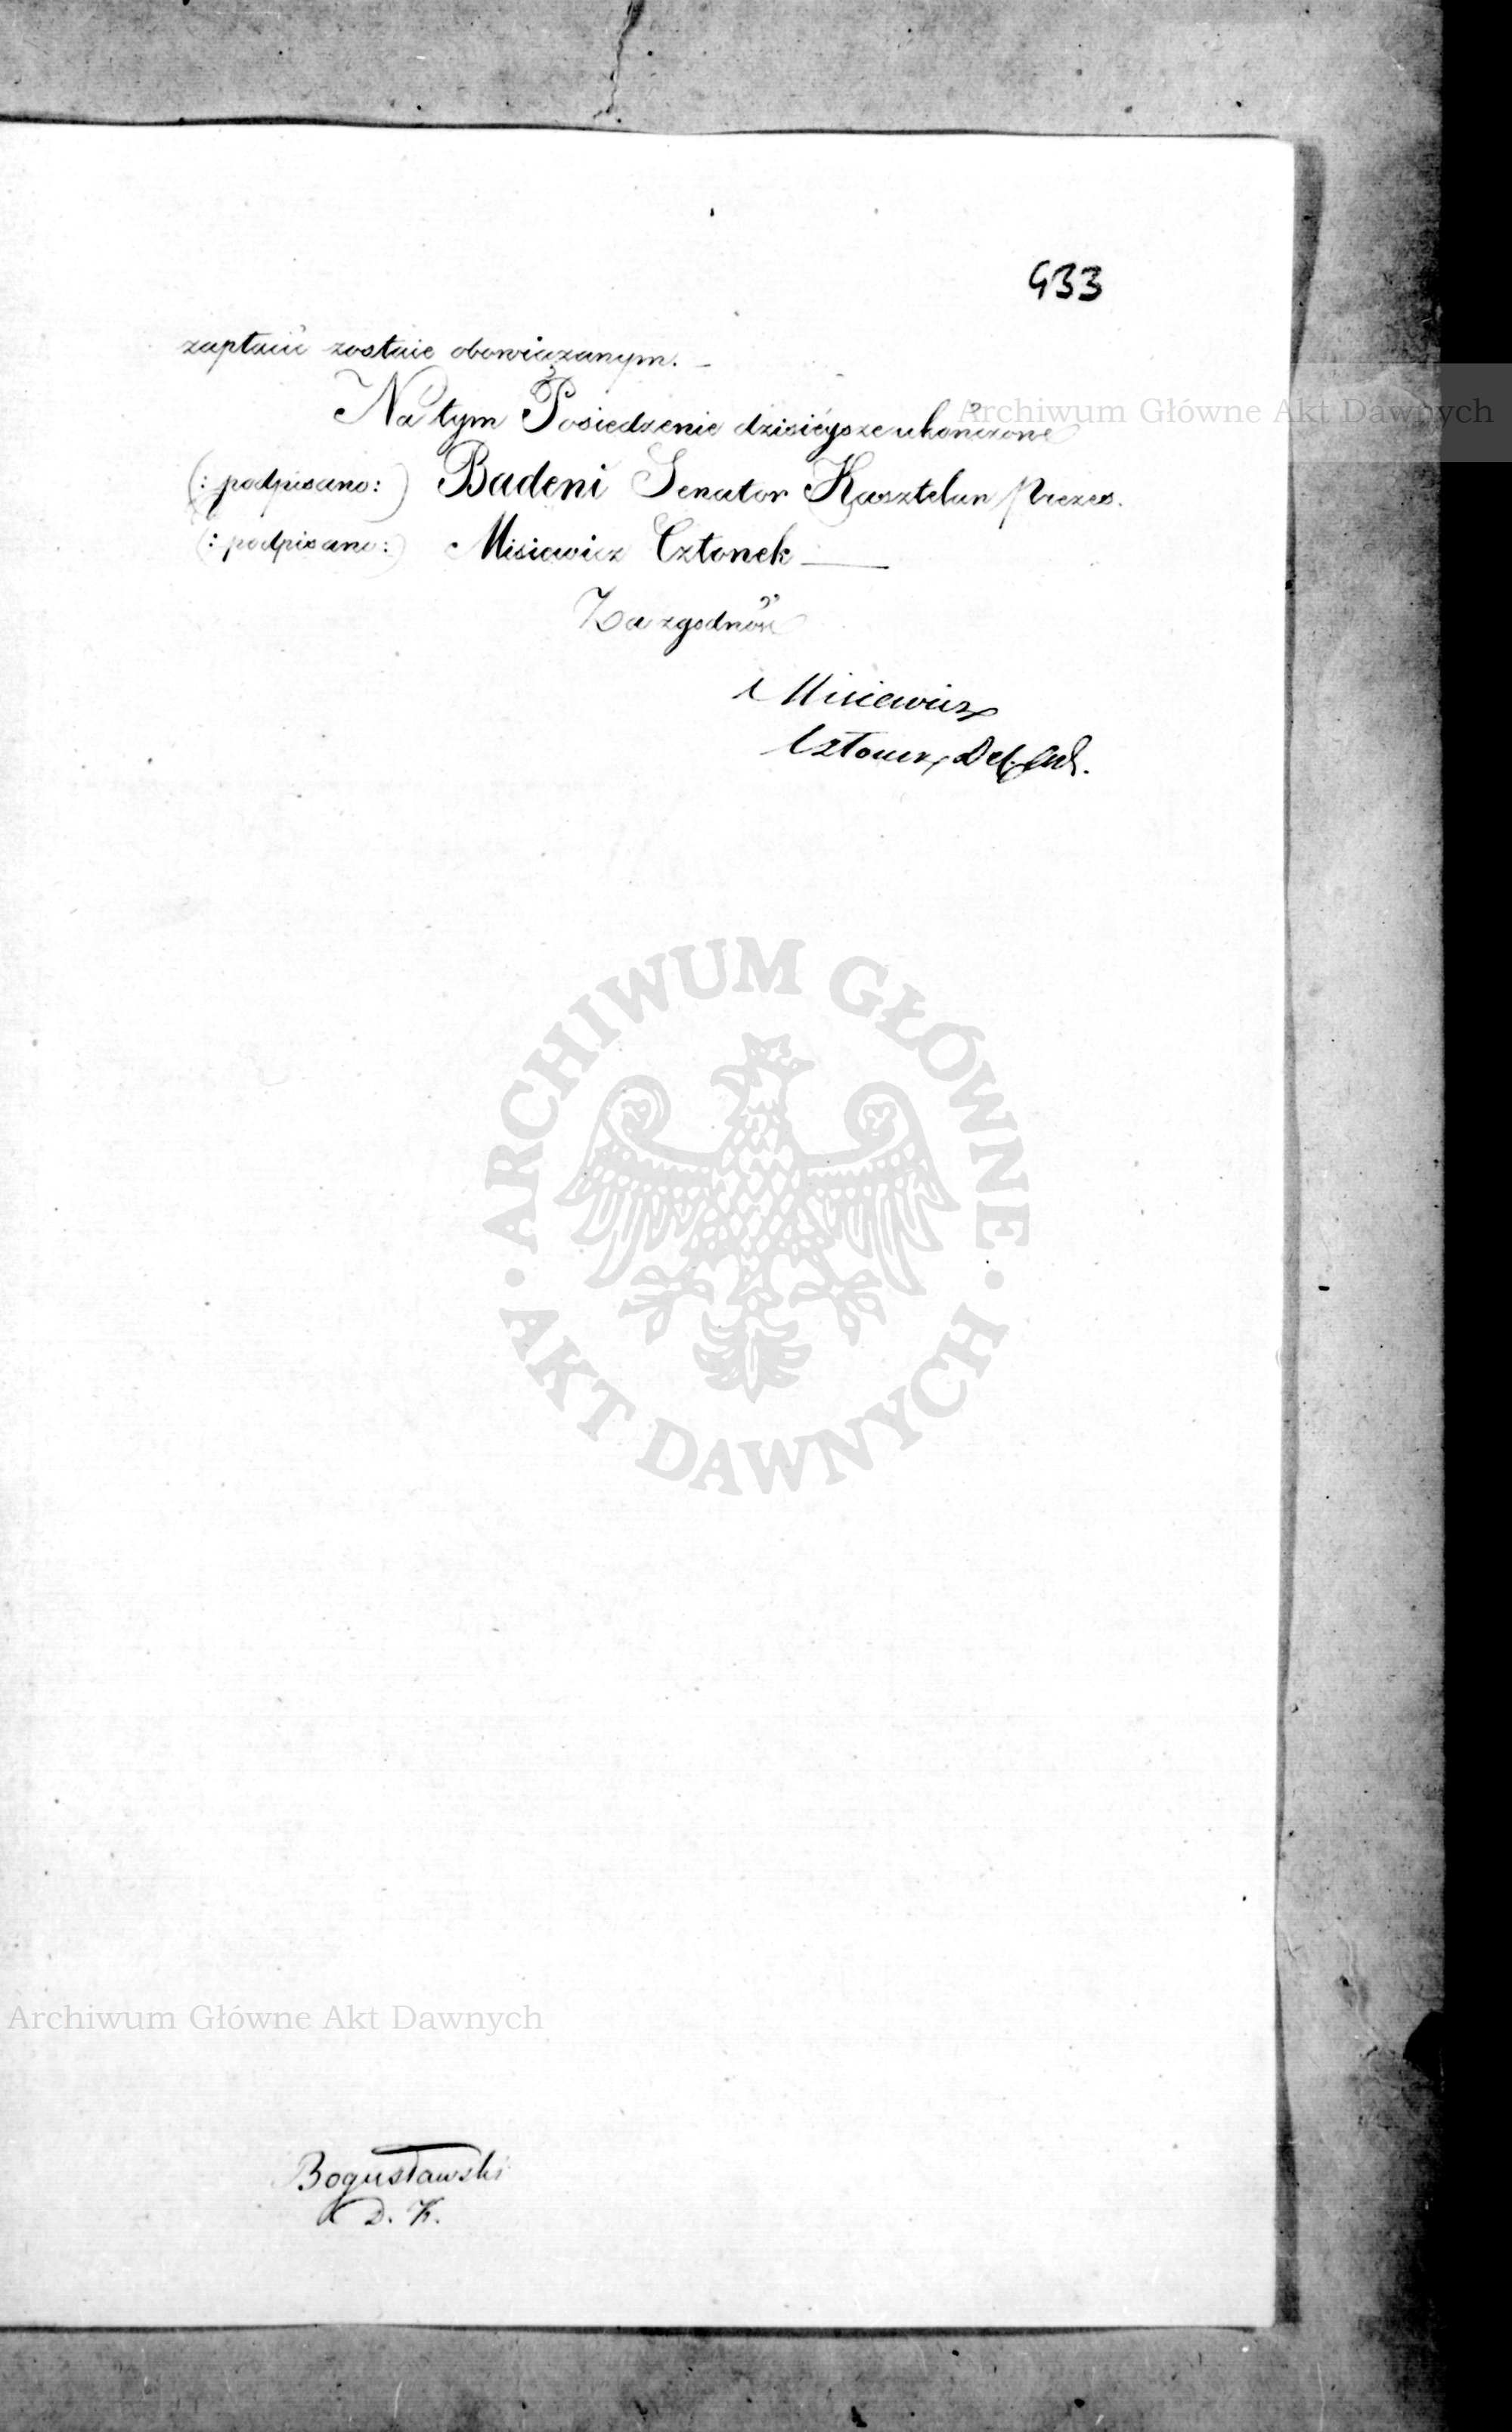 433
zapłacić zostaie obowiązanym. –
Na tym Posiedzenie dzisieysze ukończone
(: podpisano :) Badeni Senator Kasztelan Prezes.
(: podpisano :) Misiewicz Członek
Za zgodność
Misiewicz
Członek, Del.
ARCHIWUM GŁÓWNE
AKT DAWNYCH
Archiwum Główne Akt Dawnych
Archiwum Główne Akt Dawnych
Bogusławski
D. K.